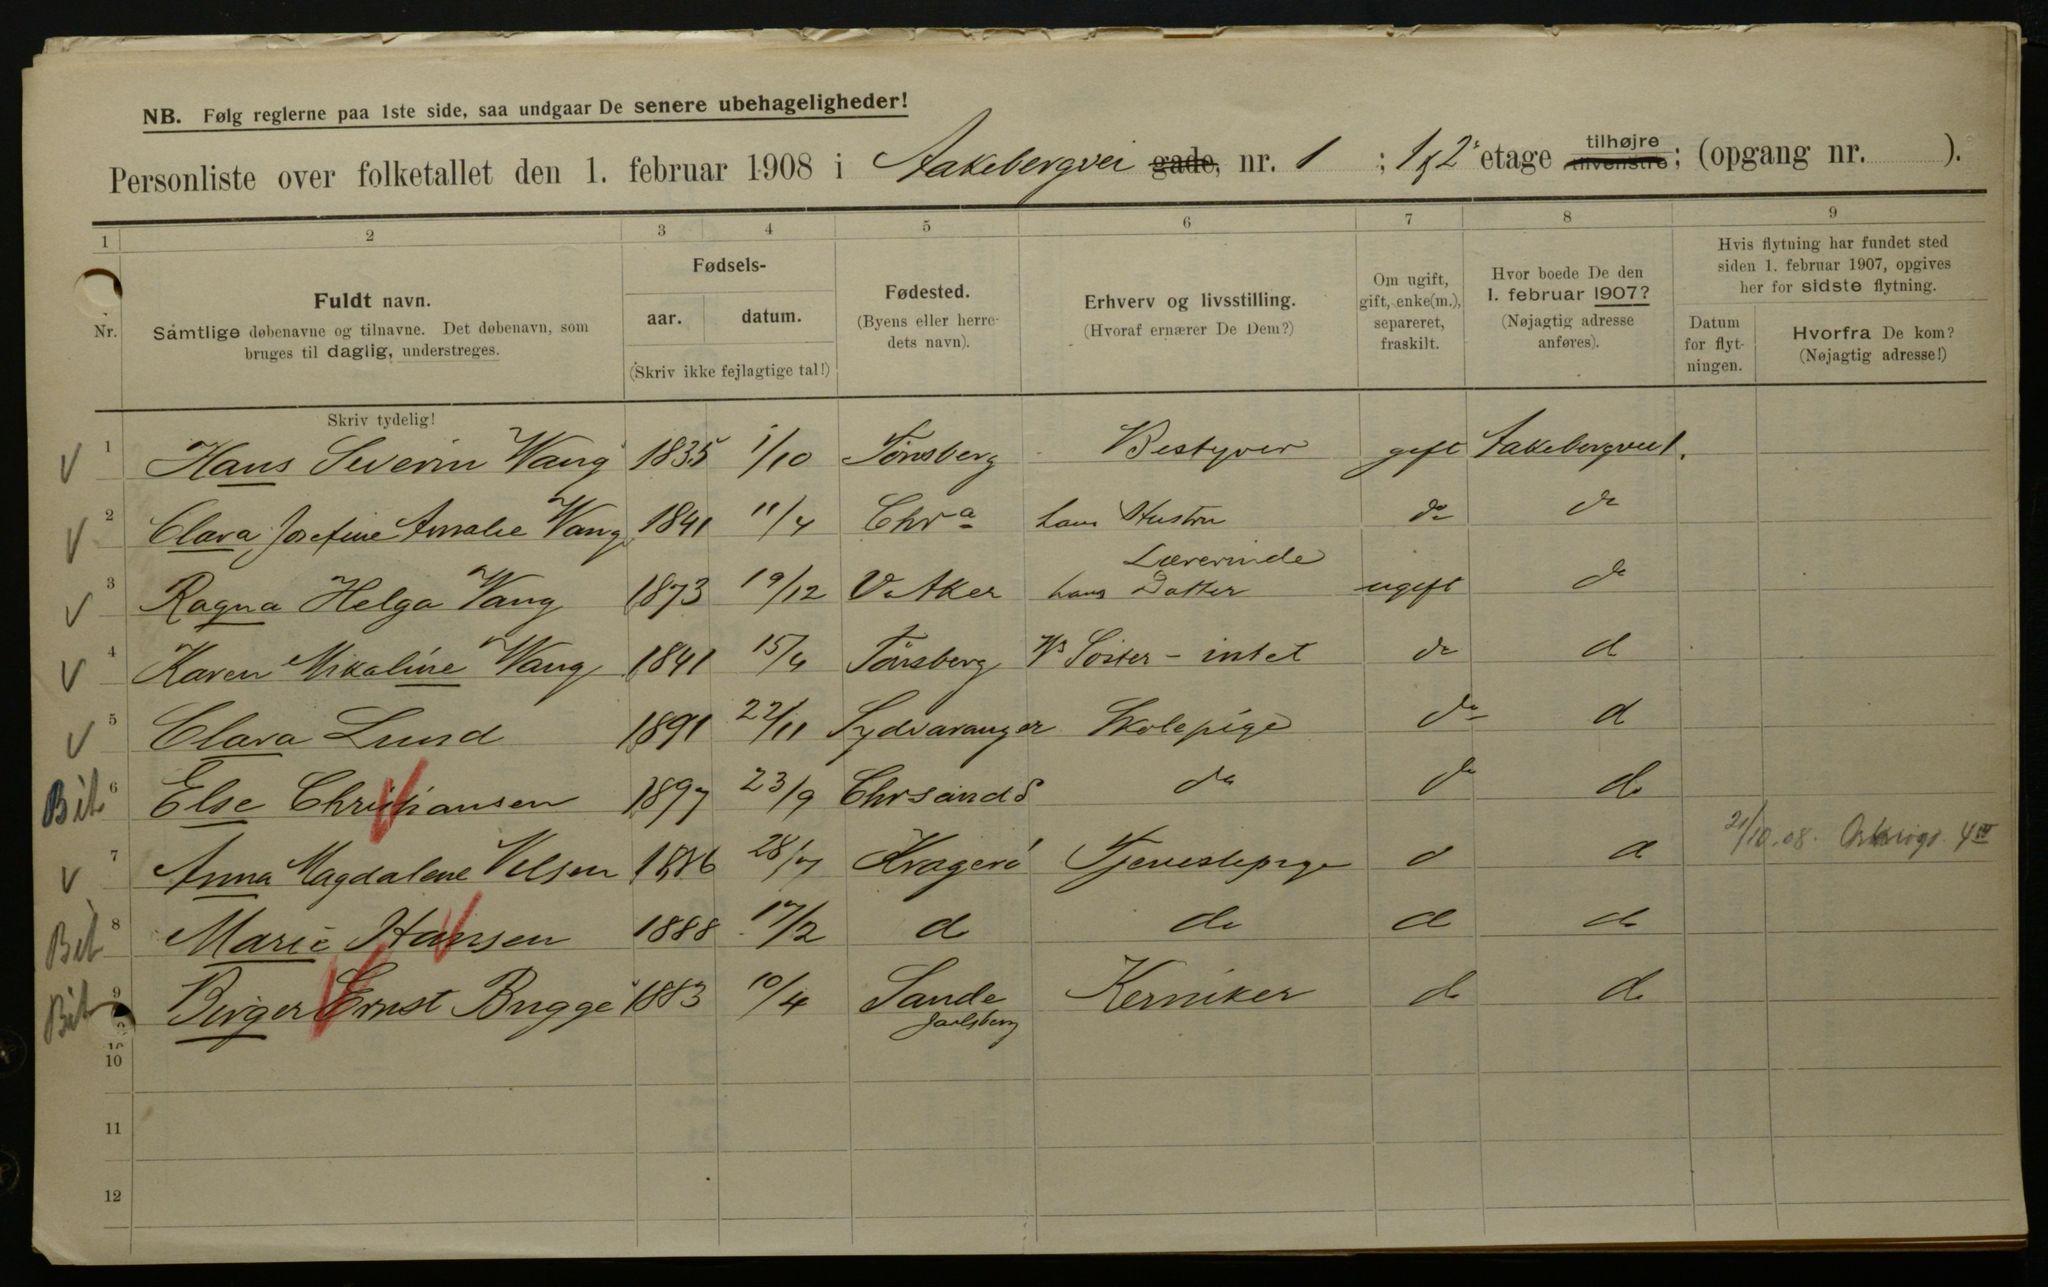 NB. Følg reglerne paa 1ste side, saa undgaar De senere ubehageligheder!
Personliste over folketallet den 1. februar 1908 i Aakebergvei gade, nr. 1 ; 1 & 2' etage tilhøjre tilvenstre; (opgang nr. ).
1 2 3 4 5 6 7 8 9
Nr.
Fuldt navn.
Samtlige døbenavne og tilnavne. Det døbenavn, som
bruges til daglig, understreges.
Skriv tydelig!
Fødsels-
aar. datum.
(Skriv ikke fejlagtige tal!)
Fødested.
(Byens eller herre-
dets navn).
Erhverv og livsstilling.
(Hvoraf ernærer De Dem?)
Om ugift,
gift, enke(m.),
separeret,
fraskilt.
Hvor boede De den
1. februar 1907?
(Nøjagtig adresse
anføres).
Hvis flytning har fundet sted
siden 1. februar 1907, opgives
her for sidste flytning.
Datum
for flyt-
ningen.
Hvorfra De kom?
(Nøjagtig adresse!)
1 Hans Severin Wang 1835 1/10 Tönsberg Bestyrer gift Aakebergvei 1.
2 Clara Josefine Amalie Wang 1841 11/4 Chra hans Hustru do do
3 Ragna Helga Wang 1873 19/12 V. Aker Lærerinde hans Datter ugift do
4 Karen Mikaline Wang 1841 15/4 Tönsberg Hs Söster - intet do d
5 Clara Lund 1891 22/11 Sydvaranger Skolepige do d
Bil 6 Else Christiansen 1897 23/9 Chrsands do do do
7 Anna Magdalene Nilsen 1886 28/7 Kragerö Tjenestepige d d 21/10.08. 4 III
Bil 8 Marie Hansen 1888 17/2 d do d do
Bil 9 Birger Ernst Bugge 1883 10/4 Sande Jarlsberg Kemiker do do
10
11
12